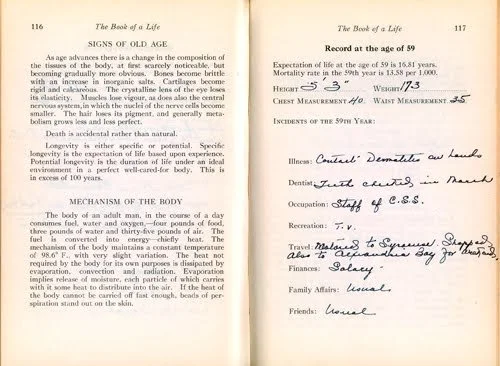 116 The Book of a Life
SIGNS OF OLD AGE
As age advances there is a change in the composition of
the tissues of the body, at first scarcely noticeable, but
becoming gradually more obvious. Bones become brittle
with an increase in inorganic salts. Cartilages become
rigid and calcareous. The crystalline lens of the eye loses
its elasticity. Muscles lose vigour, as does also the central
nervous system, in which the nuclei of the nerve cells become
smaller. The hair loses its pigment, and generally meta-
bolism grows less and less perfect.
Death is accidental rather than natural.
Longevity is either specific or potential. Specific
longevity is the expectation of life based upon experience.
Potential longevity is the duration of life under an ideal
environment in a perfect well-cared-for body. This is
in excess of 100 years.
MECHANISM OF THE BODY
The body of an adult man, in the course of a day
consumes fuel, water and oxygen,—four pounds of food,
three pounds of water and thirty-five pounds of air. The
fuel is converted into energy—chiefly heat. The
mechanism of the body maintains a constant temperature
of 98.6° F., with very slight variation. The heat not
required by the body for its own purposes is dissipated by
evaporation, convection and radiation. Evaporation
implies release of moisture, each particle of which carries
with it some heat to distribute into the air. If the heat of
the body cannot be carried off fast enough, beads of per-
spiration stand out on the skin.
The Book of a Life 117
Record at the age of 59
Expectation of life at the age of 59 is 16.81 years.
Mortality rate in the 59th year is 13.58 per 1,000.
HEIGHT 5' 3" WEIGHT 173
CHEST MEASUREMENT 40 WAIST MEASUREMENT 35
INCIDENTS OF THE 59TH YEAR:
Illness: Contact Dermatites on hands
Dentist: Teeth checked in March
Occupation: Staff of C.S.S.
Recreation: T.V.
Travel: Motored to Syracuse. Stopped
also to Alexandria Bay for
Finances: Salary
Family Affairs: Usual
Friends: Usual